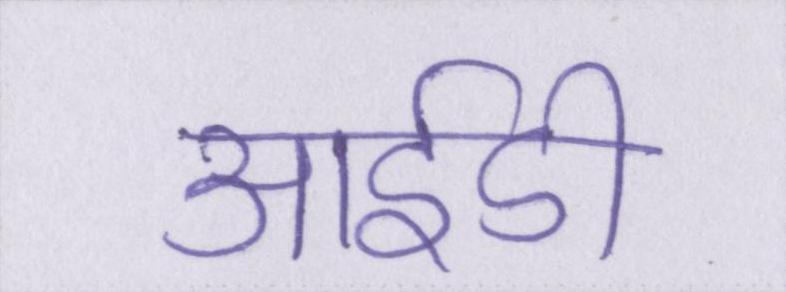 आईडी